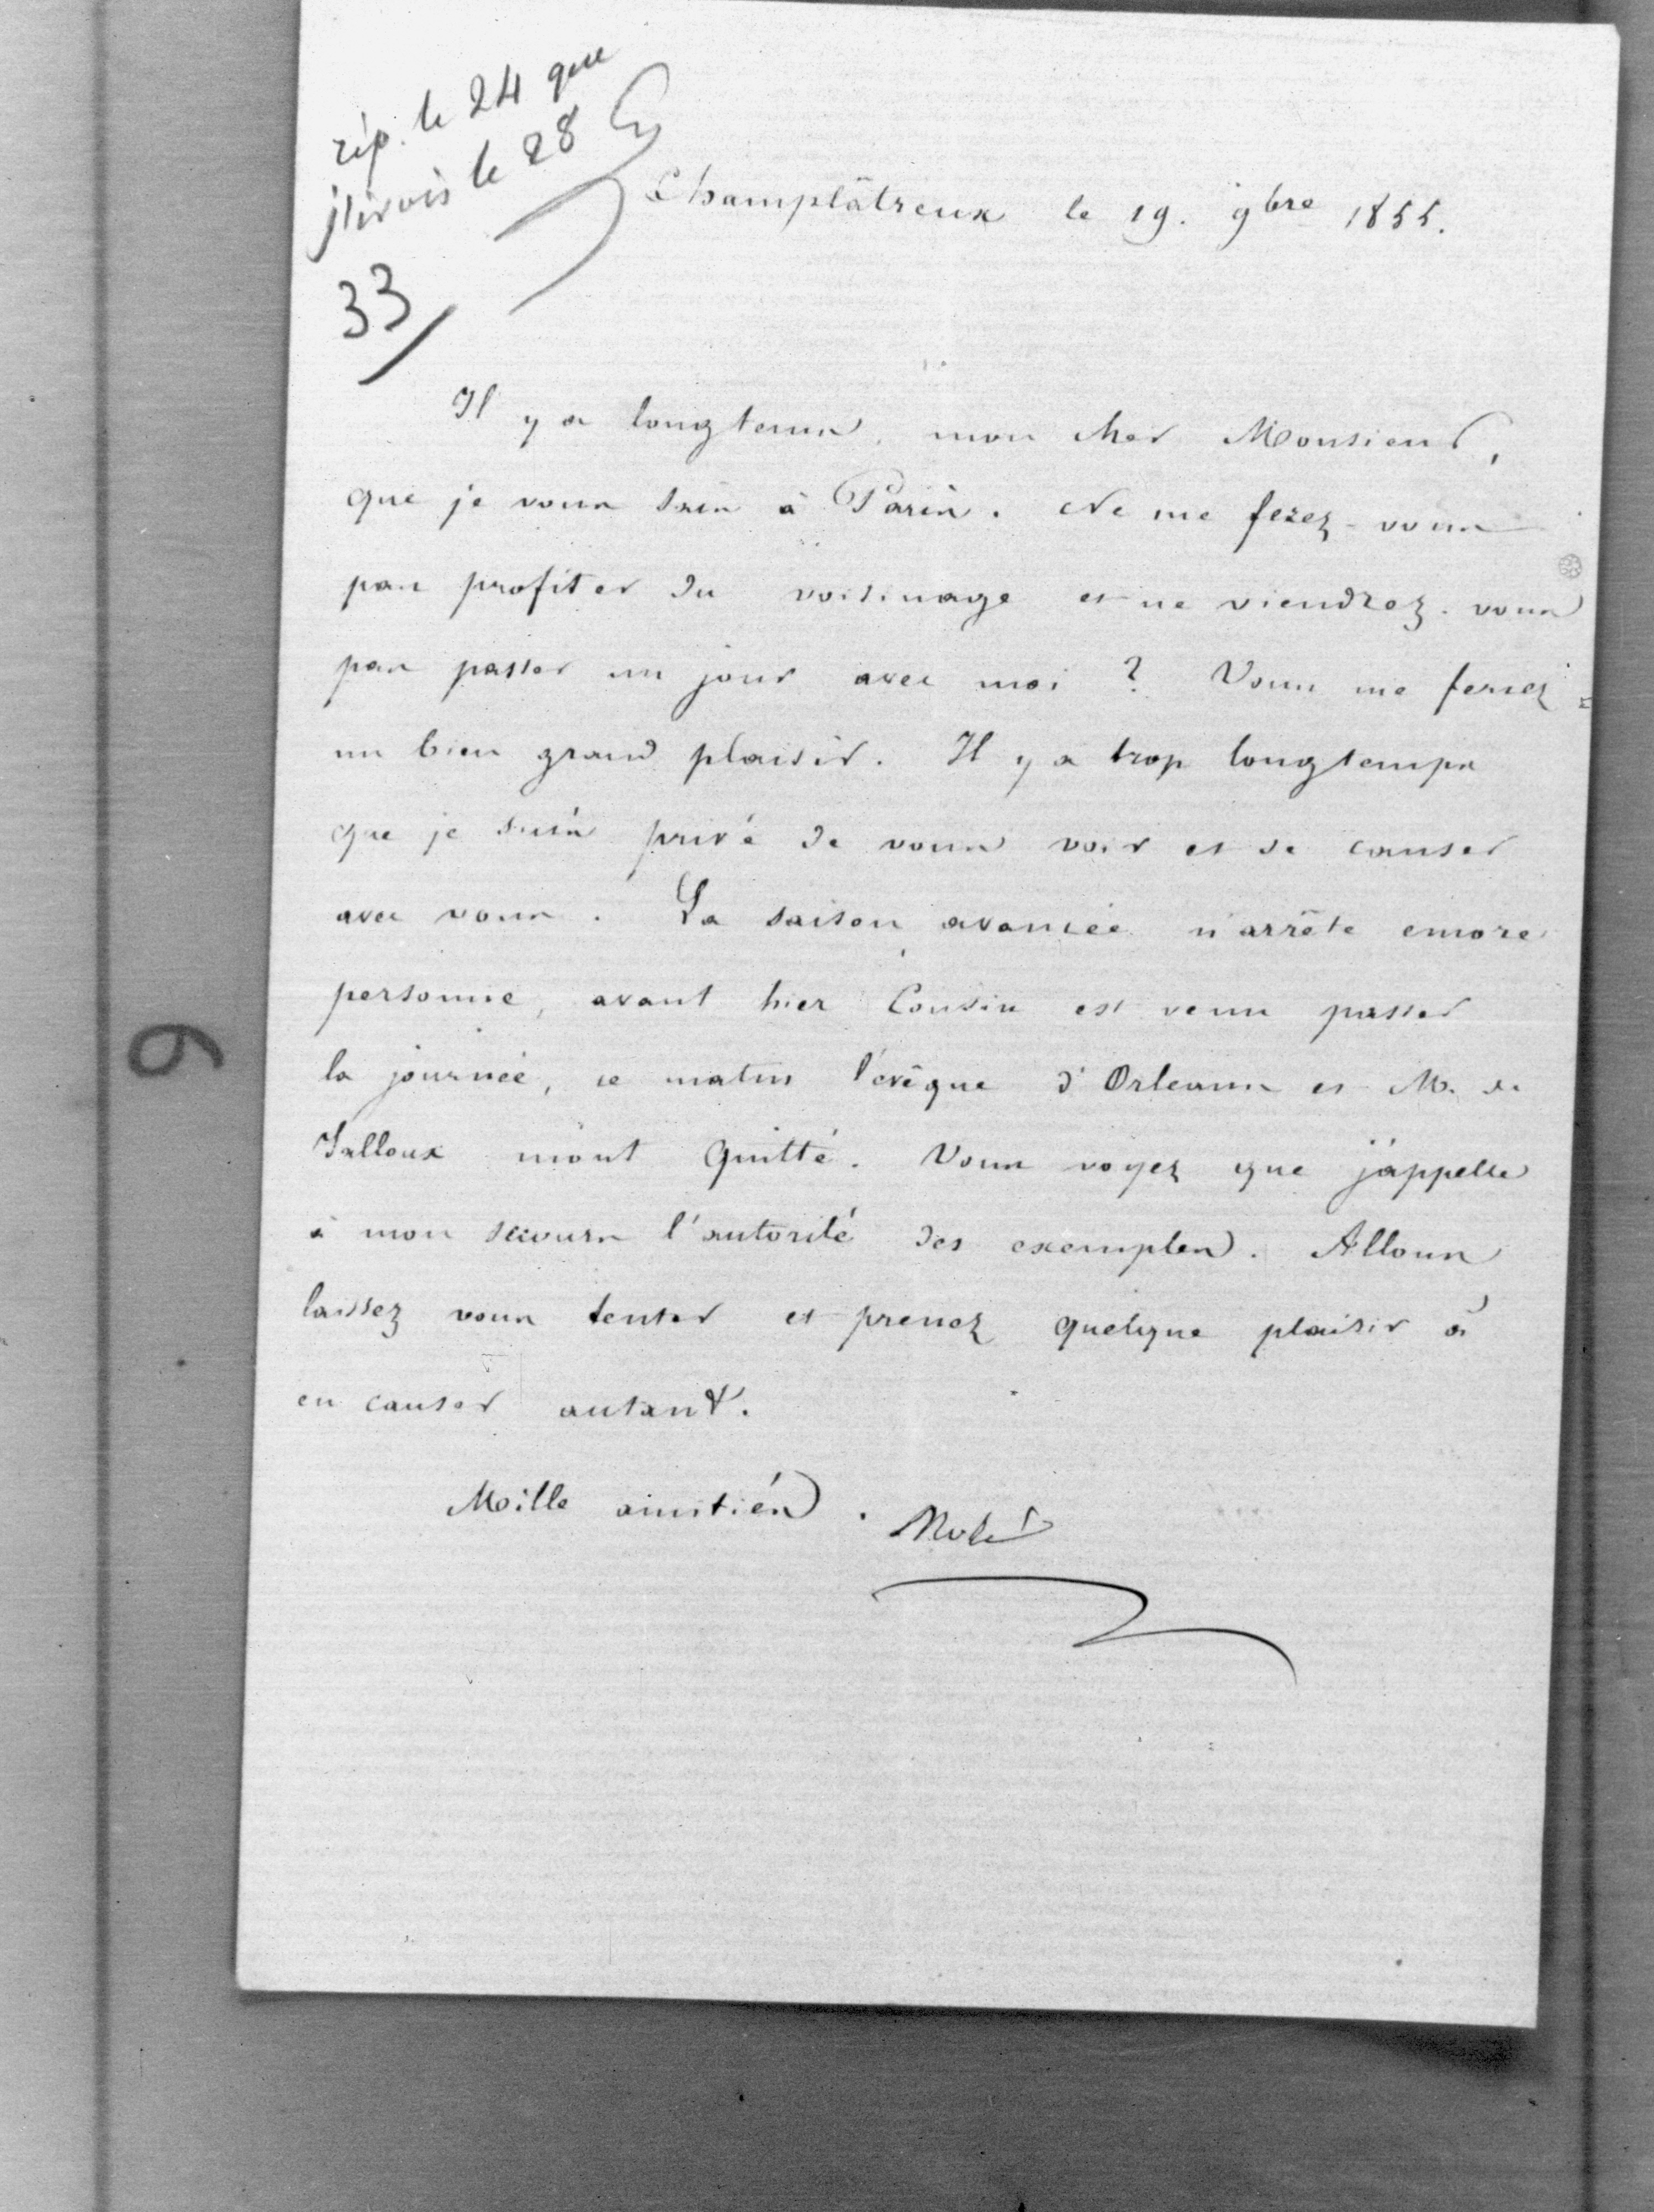 rép. le 24 que
j'irais le 28
33
Champlâtreux le 19. 9bre 1855.
Il y a longtems, mon cher Monsieur,
que je vous sais à Paris. Ne me ferez-vous
pas profiter du voisinage et ne viendrez-vous
pas passer un jour avec moi ? Vous me feriez
un bien grand plaisir. Il y a trop longtemps
que je suis privé de vous voir et de causer
avec vous. La saison avancée n'arrête encore
personne, avant hier Cousin est venu passer
la journée, ce matin l'évêque d'Orleans et M. de
Falloux m'ont quitté. Vous voyez que j'appelle
à mon secours l'autorité des exemples. Allons
laissez vous tenter et prenez quelque plaisir à
en causer autant.
Mille amitiés. Molé
6